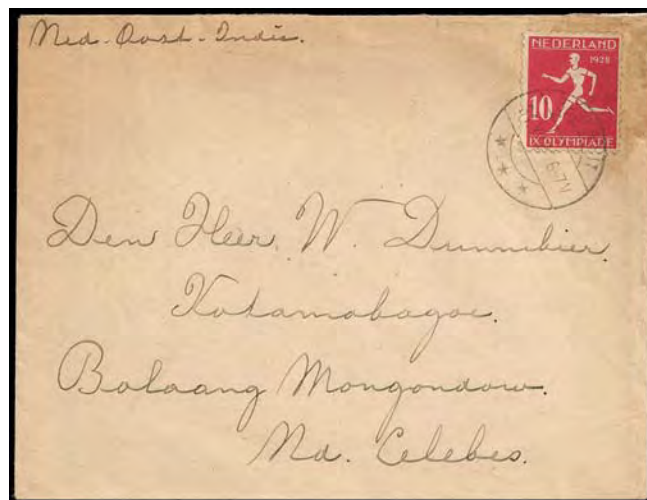 Ned. Oost-Indië.
NEDERLAND
1928
10
IX OLYMPIADE
6-7N
Den Heer W. Dunnebier.
Kotamobagoe.
Bolaang Mongondow.
Nd. Celebes.